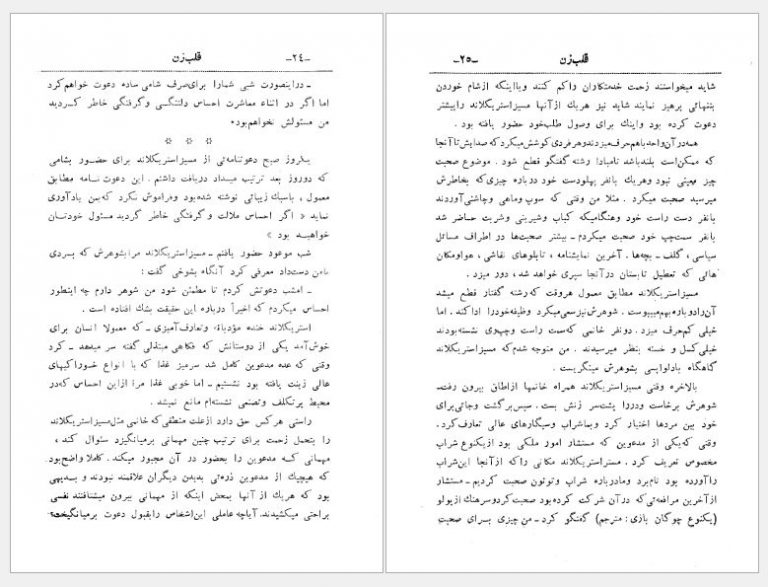 -۲٤-
قلب‌زن
ـ دراینصورت شبی شمارا برای‌صرف شامی ساده دعوت خواهم‌کرد
اما اگر در اثناء معاشرت احساس دلتنگی وگرفتگی خاطر کردید
من مسئولش نخواهم‌بود»
* * *
یکروز صبح دعوتنامه‌ئی از مسیزاستریکلاند برای حضور بشامی
که دوروز بعد ترتیب میداد دریافت داشتم . این دعوت نامه مطابق
معمول ، باسبك زیبائی نوشته شده‌بود وفراموش نکرد که‌بمن یادآوری
نماید « اگر احساس ملالت و گرفتگی خاطر گردید مسئول خودتان
خواهید بود »
شب موعود حضور یافتم ـ مسیزاستریکلاند مرابشوهرش که بسردی
بامن دست‌داد معرفی کرد آنگاه بشوخی گفت :
ـ امشب دعوتش کردم تا مطمئن شود من شوهر دارم چه اینطور
احساس میکردم که اخیراً درباره این حقیقت بشك افتاده است .
استریکلاند خنده مؤدبانهٔ وتعارف‌آمیزی ـ که معمولا انسان برای
خوش‌آمد یکی از دوستانش که فکاهی مبتذلی گفته سر میدهد ـ کرد
وقتی که عده مدعوین کامل شد سرمیز غذا که با انواع خوراکیهای
عالی زینت یافته بود نشستیم ـ اما خوبی غذا مرا ازاین احساس که‌در
محیط پرتکلف وتصنعی نشسته‌ام مانع نمیشد .
راستی هرکس حق دارد ازعلت منطقی‌که خانمی مثل‌مسیزاستریکلاند
را بتحمل زحمت برای ترتیب چنین مهمانی برمیانگیزد سئوال کند ،
مهمانی که مدعوین را بحضور در آن مجبور میکند. کاملا واضح‌بود
که هیچیك از مدعوین ذره‌ئی بدیدن دیگران علاقمند نبودند و بدیهی
بود که هریك از آنها بمحض اینکه از مهمانی بیرون میشتافتند نفسی
براحتی میکشیدند. آیاچه عاملی این‌اشخاص رابقبول دعوت برمیانگیخت؟
-۲٥-
قلب‌زن
شاید میخواستند زحمت خدمتکاران راکم کنند وبااینکه ازشام خوردن
بتنهائی پرهیز نمایند شاید نیز هریك ازآنها مسیزاستریکلاند رابیشتر
دعوت کرده بود واینك برای وصول طلب‌خود حضور یافته بود .
همه‌درآن‌واحدباهم‌حرف‌میزدندوهرفردی‌کوشش‌میکردکه‌صدایش‌تاآنجا
که ممکن‌است بلندباشد تامبادا رشته گفتگو قطع شود . موضوع صحبت
چیز معینی نبود وهریك بانفر پهلودست خود درباره چیزی‌که بخاطرش
میرسید صحبت میکرد . مثلا من وقتی که سوپ وماهی وچاشنی‌آوردند
بانفر دست راست خود وهنگامیکه کباب وشیرینی وشربت حاضر شد
بانفر سمت‌چپ خود صحبت میکردم ـ بیشتر صحبت‌ها در اطراف مسائل
سیاسی ، گلف ـ بچه‌ها . آخرین نمایشنامه ، تابلوهای نقاشی ، هواومکان
هائی که تعطیل تابستان درآنجا سپری خواهد شد ، دور میزد .
مسیزاستریکلاند مطابق معمول هروقت که رشته گفتار قطع میشد
آن‌رادوباره‌بهم‌میپیوست. شوهرش‌نیزسعی‌میکرد وظیفه‌خودرا اداکند. اما
خیلی کم‌حرف میزد. دونفر خانمی که‌سمت راست وچپ‌وی نشسته‌بودند
خیلی‌کسل و خسته بنظر میرسیدند . من متوجه شدم‌که مسیزاستریکلاند
گاهگاه بادلواپسی بشوهرش مینگریست .
بالاخره وقتی مسیزاستریکلاند همراه خانمها ازاطاق بیرون رفت‌ـ
شوهرش برخاست ودررا پشت‌سر زنش بست . سپس‌برگشت وجائی‌برای
خود بین مردها اختیار کرد وبماشراب وسیگارهای عالی تعارف‌کرد .
وقتی که‌یکی از مدعوین که مستشار امور ملکی بود ازیکنوع شراب
مخصوص تعریف کرد . مستراستریکلاند مکانی راکه ازآنجا این‌شراب
راآورده بود نام‌برد ومادرباره شراب وتوتون صحبت کردیم ـ مستشار
ازآخرین مرافعه‌ئی که درآن شرکت کرده‌بود صحبت کردوسرهنك ازپولو
(یکنوع چوگان بازی : مترجم) گفتگو کرد ـ من چیزی برای صحبت